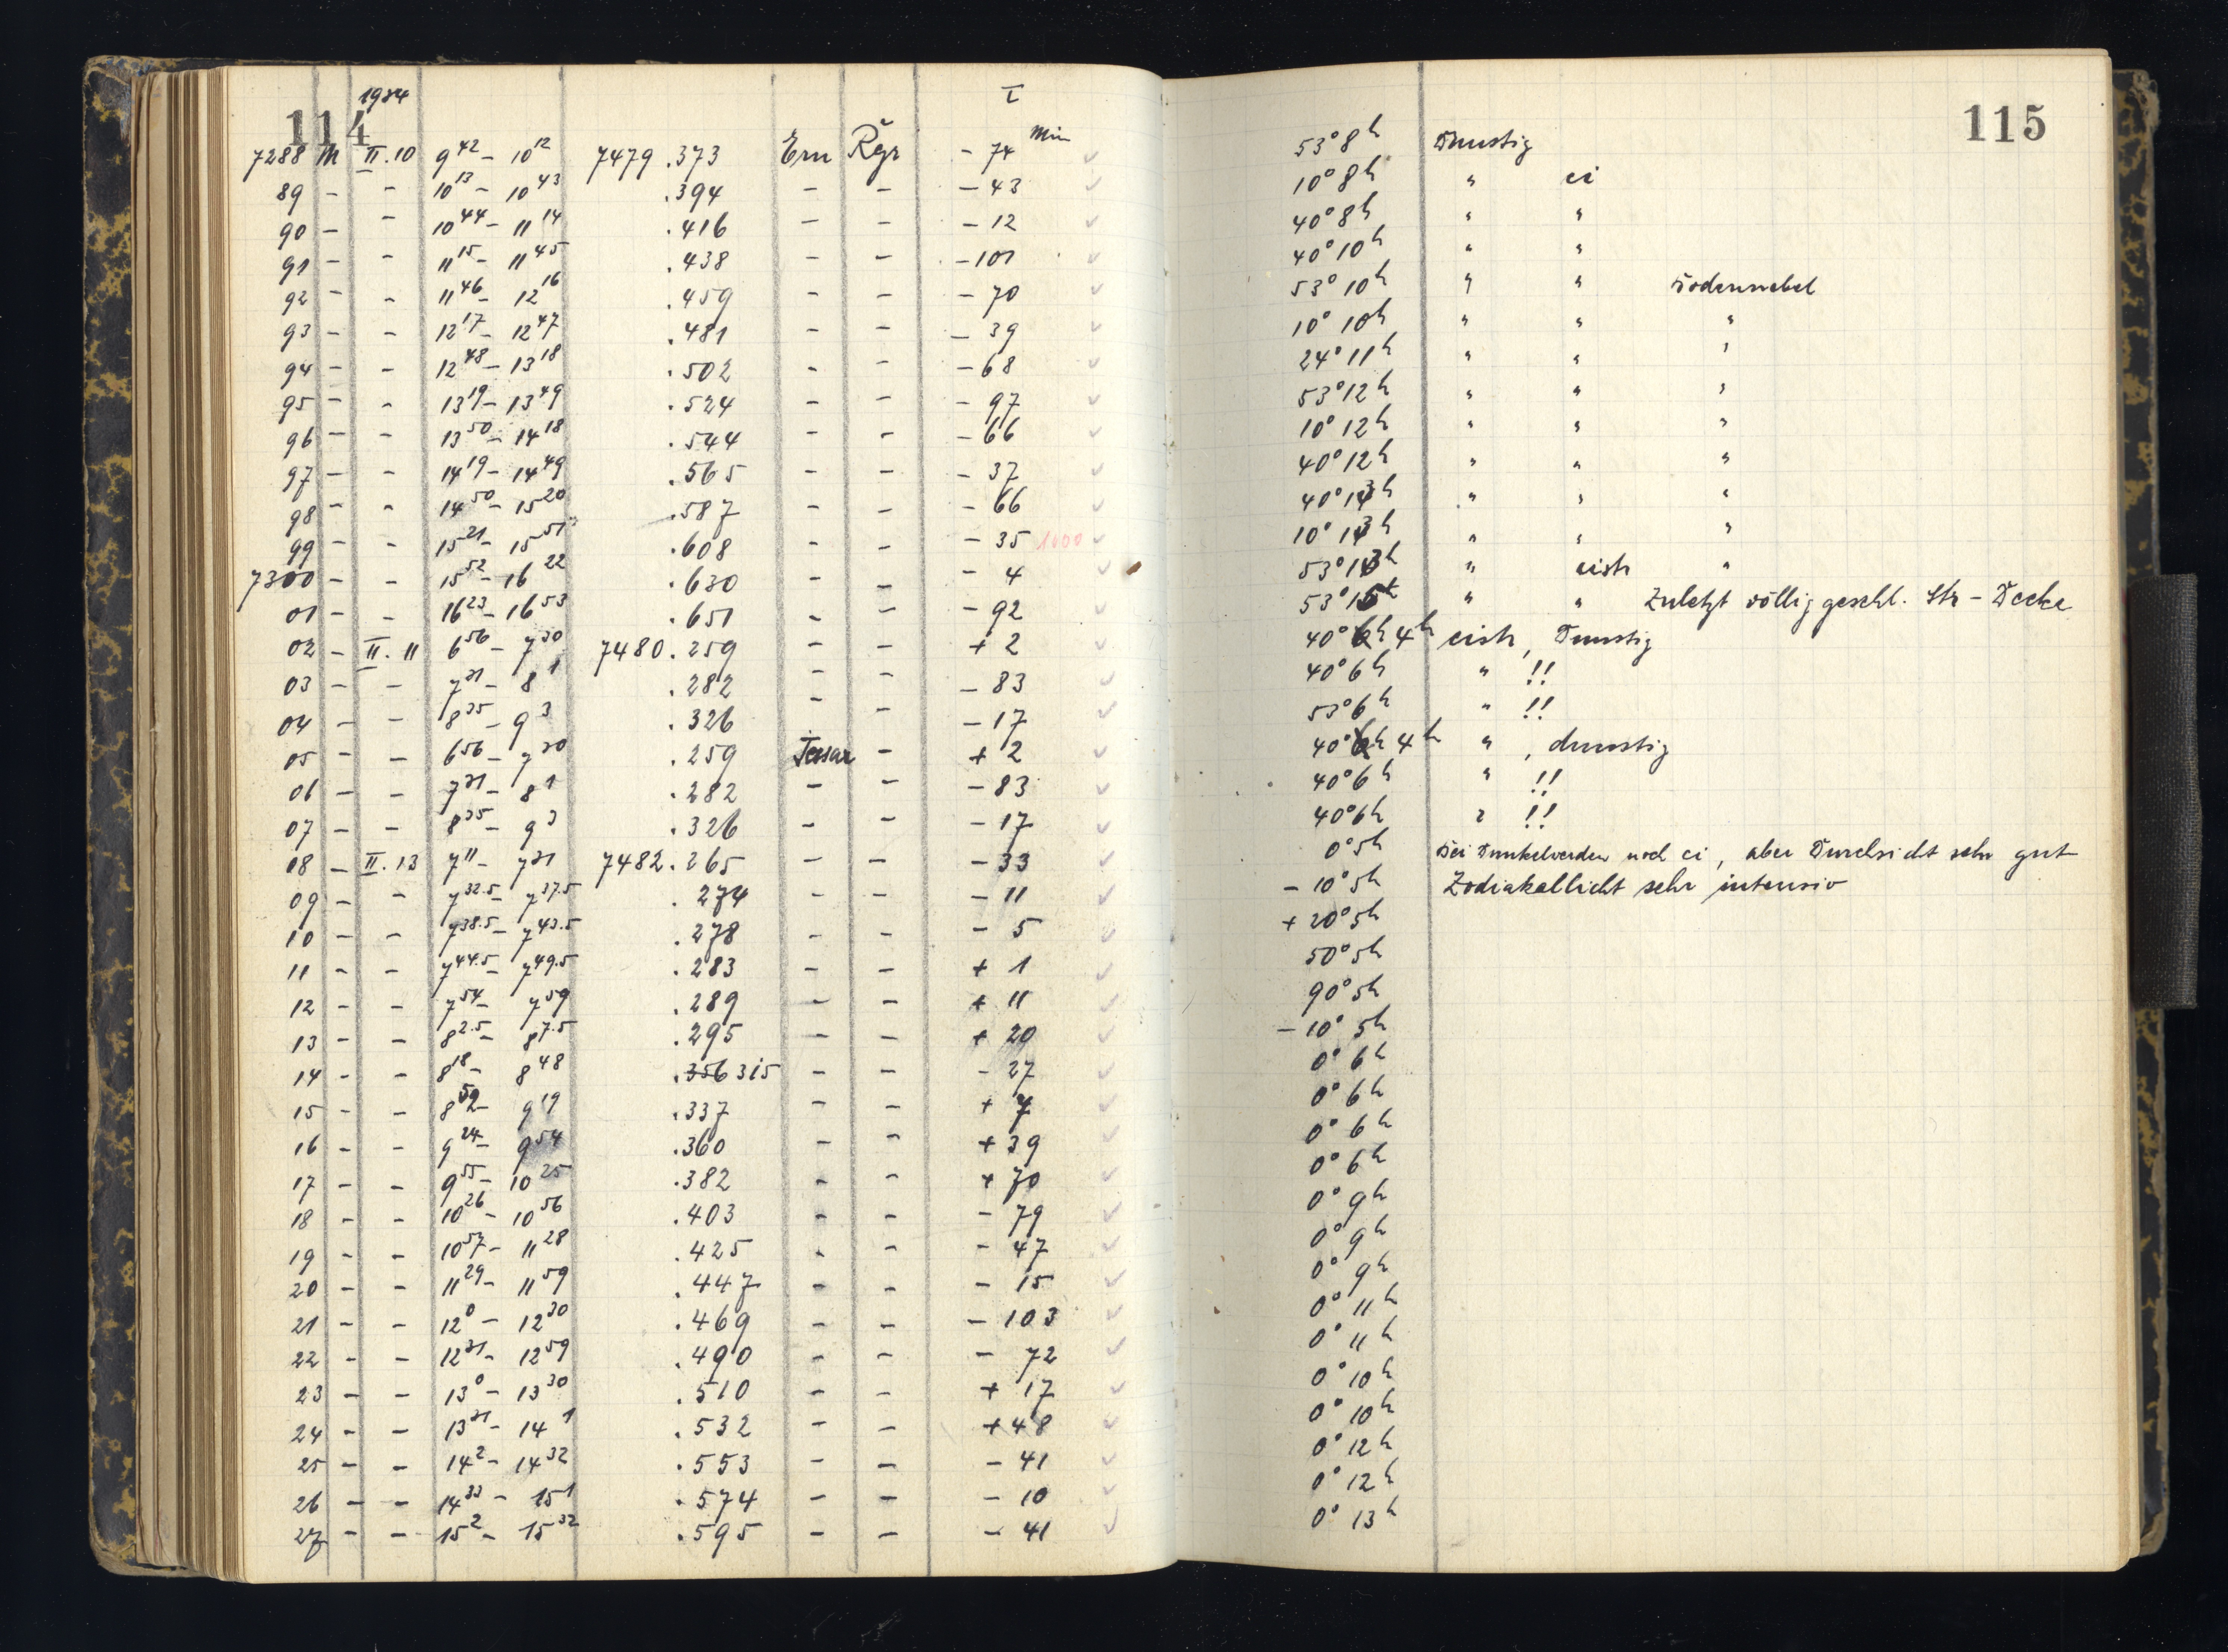 114 1934 I 115
7288 M II.10 9 42 – 10 12 7479 .373 Ern Řgr – 74 Min 53° 8h Dunstig
89 – – 10 13 – 10 43 .394 – – – 43 10° 8h " ci
90 – – 10 44 – 11 14 .416 – – – 12 40° 8h " "
91 – – 11 15 – 11 45 .438 – – – 101 40° 10h " "
92 – – 11 46 – 12 16 .459 – – – 70 53° 10h " " Bodennebel
93 – – 12 17 – 12 47 .481 – – – 39 10° 10h " " "
94 – – 12 48 – 13 18 .502 – – – 68 24° 11h " " "
95 – – 13 19 – 13 49 .524 – – – 97 53° 12h " " "
96 – – 13 50 – 14 18 .544 – – – 66 10° 12h " " "
97 – – 14 19 – 14 49 .565 – – – 37 40° 12h " " "
98 – – 14 50 – 15 20 .587 – – – 66 40° 13h " " "
99 – – 15 21 – 15 51 .608 – – – 35 1000 10° 13h " " "
7300 – – 15 52 – 16 22 .630 – – – 4 53° 13h " cistr "
01 – – 16 23 – 16 53 .651 – – – 92 53° 15h " " Zuletzt völlig geschl. Str – Decke
02 – II.11 6 56 – 7 30 7480.259 – – + 2 40° 4h cistr, Dunstig
03 – – 7 31 – 8 1 .282 – – – 83 40° 6h " !!
04 – – 8 35 – 9 3 .326 – – – 17 53° 6h " !!
05 – – 6 56 – 7 30 .259 Tessar – + 2 40° 4h " , dunstig
06 – – 7 31 – 8 1 .282 – – – 83 40° 6h " !!
07 – – 8 35 – 9 3 .326 – – – 17 40° 6h " !!
08 – II.13 7 11 – 7 31 7482.265 – – – 33 0° 5h Bei Dunkelwerden noch ci, aber Durchsicht sehr gut
09 – – 7 32.5 – 7 37.5 .274 – – – 11 – 10° 5h Zodiakallicht sehr intensiv
10 – – 7 38.5 – 7 43.5 .278 – – – 5 + 20° 5h
11 – – 7 44.5 – 7 49.5 .283 – – + 1 50° 5h
12 – – 7 54 – 7 59 .289 – – + 11 90° 5h
13 – – 8 2.5 – 8 7.5 .295 – – + 20 – 10° 5h
14 – – 8 18 – 8 48 .356 315 – – – 27 0° 6h
15 – – 8 – 9 19 .337 – – + 7 0° 6h
16 – – 9 24 – 9 54 .360 – – + 39 0° 6h
17 – – 9 55 – 10 25 .382 – – + 70 0° 6h
18 – – 10 26 – 10 56 .403 – – – 79 0° 9h
19 – – 10 57 – 11 28 .425 – – – 47 0° 9h
20 – – 11 29 – 11 59 .447 – – – 15 0° 9h
21 – – 12 0 – 12 30 .469 – – – 103 0° 11h
22 – – 12 31 – 12 59 .490 – – – 72 0° 11h
23 – – 13 0 – 13 30 .510 – – + 17 0° 10h
24 – – 13 31 – 14 1 .532 – – + 48 0° 10h
25 – – 14 2 – 14 32 .553 – – – 41 0° 12h
26 – – 14 33 – 15 1 .574 – – – 10 0° 12h
27 – – 15 2 – 15 32 .595 – – – 41 0° 13h